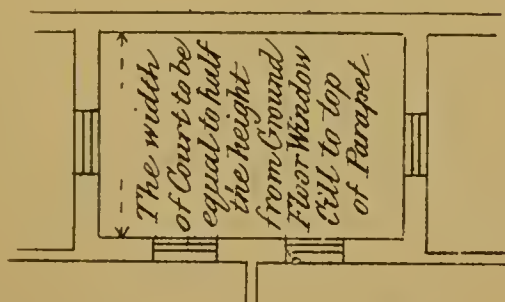 The width
of Court to be
equal to half
the height
from Ground
Floor Window
Cill to top
of Parapet